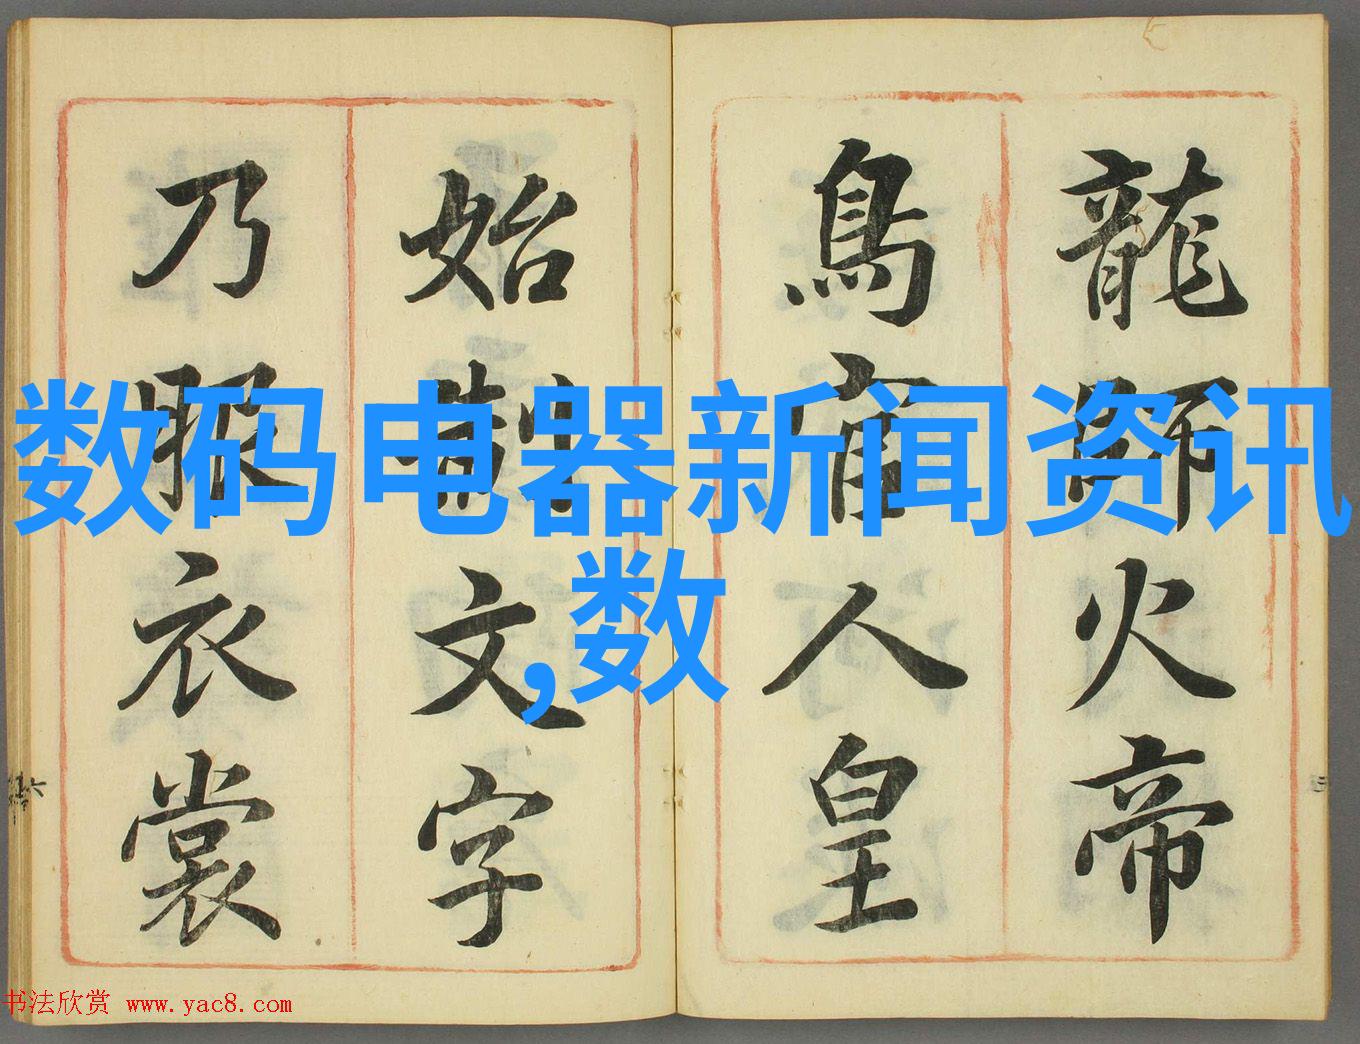 龍師火帝
鳥官人皇
始制文字
乃服衣裳
数码电器新闻资讯
,数
书法欣赏 www.yac8.com